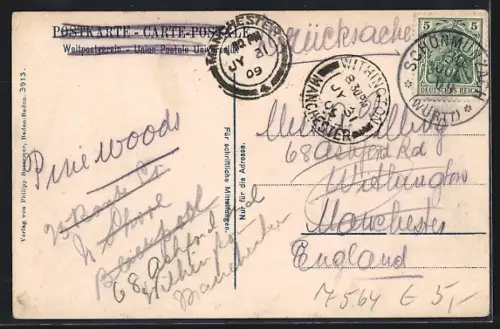 POSTKARTE - CARTE POSTALE
Weltpostverein - Union Postale Universelle
Drucksache
MANCHESTER
JY 31
09
4
WITHINGTON
8.30PM
JY 31
09
MANCHESTER
SCHÖNMÜNZACH
(WÜRTT)
5 5
DEUTSCHES REICH
Verlag von Philipp Bussemer, Baden-Baden. 3913.
Für schriftliche Mitteilungen.
Nur für die Adresse.
Pinewoods
N Shore
Blackpool
68 Ashford Rd
Withington
Manchester
68 Ashford Rd
Withington
Manchester
England
M564 E 5,-